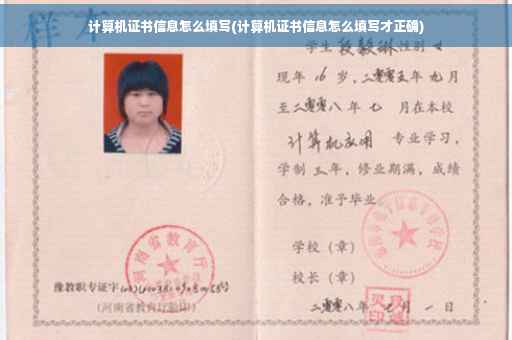 计算机证书信息怎么填写(计算机证书信息怎么填写才正确)
样本
学生段毅琳性别女
现年16岁，二零零五年九月
至二零零八年七月在本校
计算机应用 专业学习，
学制三年，修业期满，成绩
合格，准予毕业
学校（章）
校长（章）
二零零八年七月一日
河南省教育厅
豫教职专证字
(河南省教育厅验印)